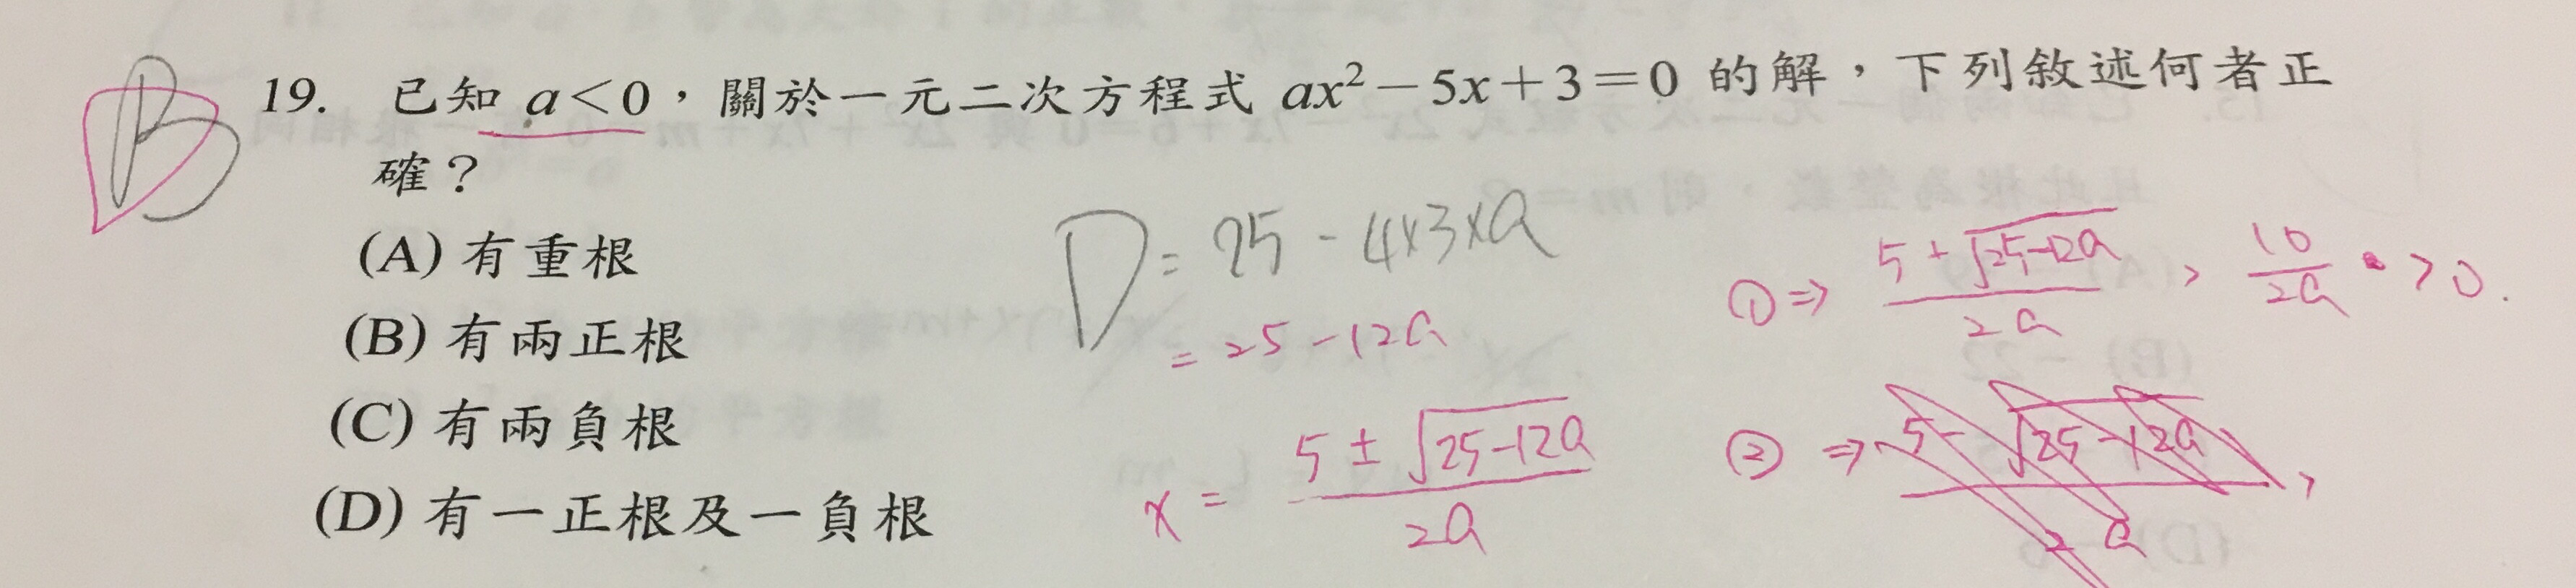 B
19. 已知 a<0，關於一元二次方程式 ax²-5x+3=0 的解，下列敘述何者正
確？
(A) 有重根
(B) 有兩正根
(C) 有兩負根
(D) 有一正根及一負根
D = 25 - 4×3×a
= 25-12a
x = (5 ± √(25-12a)) / 2a
① ⇒ (5 + √(25-12a)) / 2a > 10 / 2a > 0.
② ⇒ (5 - √(25-12a)) / 2a ,